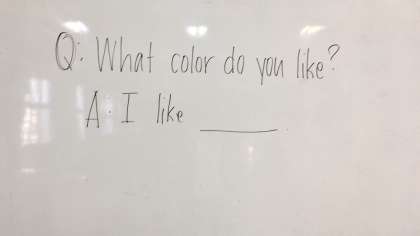 Q: What color do you like?
A: I like ________.